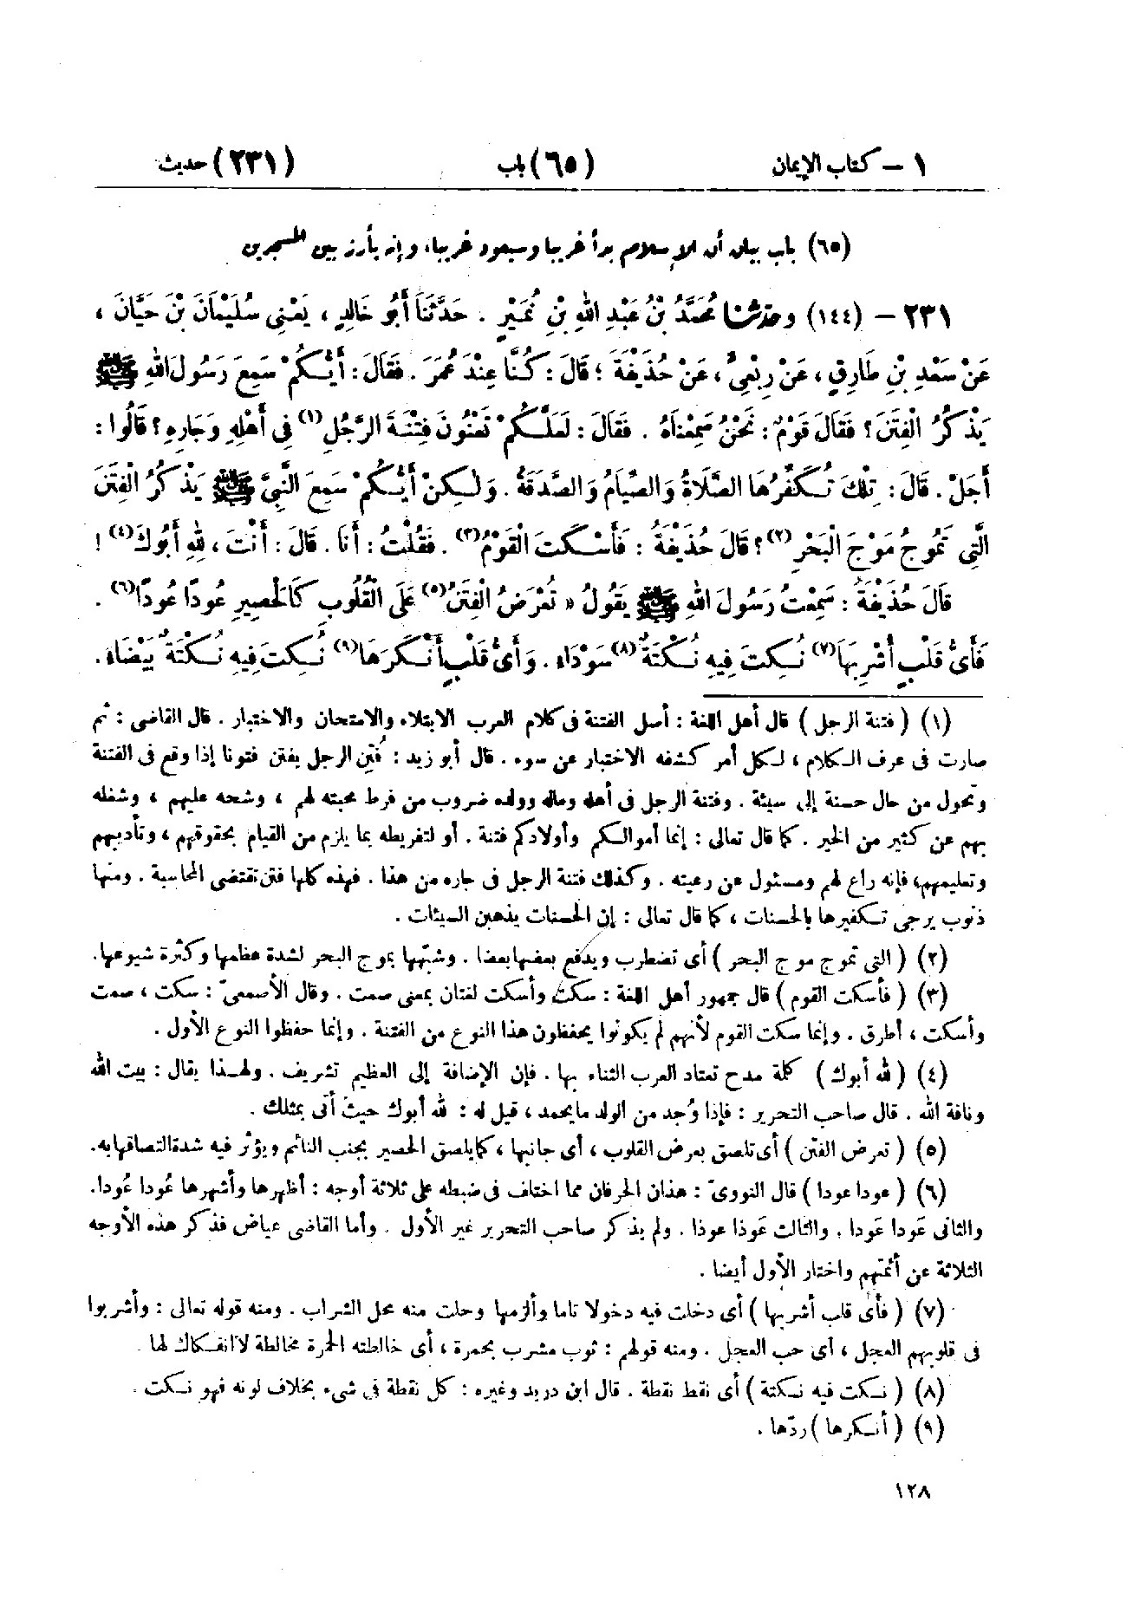 ١ – كتاب الإيمان (٦٥) باب (٢٣١) حديث
(٦٥) باب بيان أن الإسلام بدأ غريبا وسيعود غريبا، وإنه يأرز بين المسجدين
٢٣١ – (١٤٤) وحدثنا مُحَمَّدُ بْنُ عَبْدِ اللهِ بْنِ نُمَيْرٍ . حَدَّثَنَا أَبُو خَالِدٍ ، يَعْنِي سُلَيْمَانَ بْنَ حَيَّانَ ،
عَنْ سَعْدِ بْنِ طَارِقٍ ، عَنْ رِبْعِيٍّ ، عَنْ حُذَيْفَةَ ؛ قَالَ : كُنَّا عِنْدَ عُمَرَ . فَقَالَ : أَيُّكُمْ سَمِعَ رَسُولَ اللهِ ﷺ
يَذْكُرُ الْفِتَنَ ؟ فَقَالَ قَوْمٌ : نَحْنُ سَمِعْنَاهُ . فَقَالَ : لَعَلَّكُمْ تَعْنُونَ فِتْنَةَ الرَّجُلِ(١) فِي أَهْلِهِ وَجَارِهِ ؟ قَالُوا :
أَجَلْ . قَالَ : تِلْكَ تُكَفِّرُهَا الصَّلَاةُ وَالصِّيَامُ وَالصَّدَقَةُ . وَلَكِنْ أَيُّكُمْ سَمِعَ النَّبِيَّ ﷺ يَذْكُرُ الْفِتَنَ
الَّتِي تَمُوجُ مَوْجَ الْبَحْرِ(٢) ؟ قَالَ حُذَيْفَةُ : فَأَسْكَتَ الْقَوْمُ(٣) . فَقُلْتُ : أَنَا . قَالَ : أَنْتَ ، لِلهِ أَبُوكَ(٤) !
قَالَ حُذَيْفَةُ : سَمِعْتُ رَسُولَ اللهِ ﷺ يَقُولُ « تُعْرَضُ الْفِتَنُ(٥) عَلَى الْقُلُوبِ كَالْحَصِيرِ عُودًا عُودًا(٦) .
فَأَيُّ قَلْبٍ أُشْرِبَهَا(٧) نُكِتَ فِيهِ نُكْتَةٌ(٨) سَوْدَاءُ . وَأَيُّ قَلْبٍ أَنْكَرَهَا(٩) نُكِتَ فِيهِ نُكْتَةٌ بَيْضَاءُ .
(١) ( فتنة الرجل ) قال أهل اللغة : أصل الفتنة فى كلام العرب الابتلاء والامتحان والاختبار . قال القاضى : ثم
صارت فى عرف الكلام ، لكل أمر كشفه الاختبار عن سوء . قال أبو زيد : فُتِن الرجل يفتن فتونا إذا وقع فى الفتنة
وتحول من حال حسنة إلى سيئة . وفتنة الرجل فى أهله وماله وولده ضروب من فرط محبته لهم ، وشحه عليهم ، وشغله
بهم عن كثير من الخير . كما قال تعالى : إنما أموالكم وأولادكم فتنة . أو لتفريطه بما يلزم من القيام بحقوقهم ، وتأديبهم
وتعليمهم، فإنه راع لهم ومسئول عن رعيته . وكذلك فتنة الرجل فى جاره من هذا . فهذه كلها فتن تقتضى المحاسبة . ومنها
ذنوب يرجى تكفيرها بالحسنات ، كما قال تعالى : إن الحسنات يذهبن السيئات .
(٢) ( التى تموج موج البحر ) أى تضطرب ويدفع بعضها بعضا . وشبّهها بموج البحر لشدة عظمها وكثرة شيوعها.
(٣) ( فأسكت القوم ) قال جمهور أهل اللغة : سكت وأسكت لغتان بمعنى صمت . وقال الأصمعىّ : سكت ، صمت
وأسكت ، أطرق . وإنما سكت القوم لأنهم لم يكونوا يحفظون هذا النوع من الفتنة . وإنما حفظوا النوع الأول .
(٤) ( لله أبوك ) كلمة مدح تعتاد العرب الثناء بها . فإن الإضافة إلى العظيم تشريف . ولهذا يقال : بيت الله
وناقة الله . قال صاحب التحرير : فإذا وُجد من الولد ما يحمد ، قيل له : لله أبوك حيث أتى بمثلك .
(٥) ( تعرض الفتن ) أى تلصق بعرض القلوب ، أى جانبها ، كما يلصق الحصير بجنب النائم ويؤثر فيه شدة التصاقها به.
(٦) ( عودا عودا ) قال النووىّ : هذان الحرفان مما اختلف فى ضبطه على ثلاثة أوجه : أظهرها وأشهرها عُودا عُودا.
والثانى عَودا عَودا . والثالث عَوذا عوذا . ولم يذكر صاحب التحرير غير الأول . وأما القاضى عياض فذكر هذه الأوجه
الثلاثة عن أئمتهم واختار الأول أيضا .
(٧) ( فأى قلب أشربها ) أى دخلت فيه دخولا تاما وألزمها وحلت منه محل الشراب . ومنه قوله تعالى : وأشربوا
فى قلوبهم العجل ، أى حب العجل . ومنه قولهم : ثوب مشرب بحمرة ، أى خالطته الحمرة مخالطة لا انفكاك لها .
(٨) ( نكت فيه نكتة ) أى نقط نقطة . قال ابن دريد وغيره : كل نقطة فى شىء بخلاف لونه فهو نكت .
(٩) ( أنكرها ) ردّها .
١٢٨